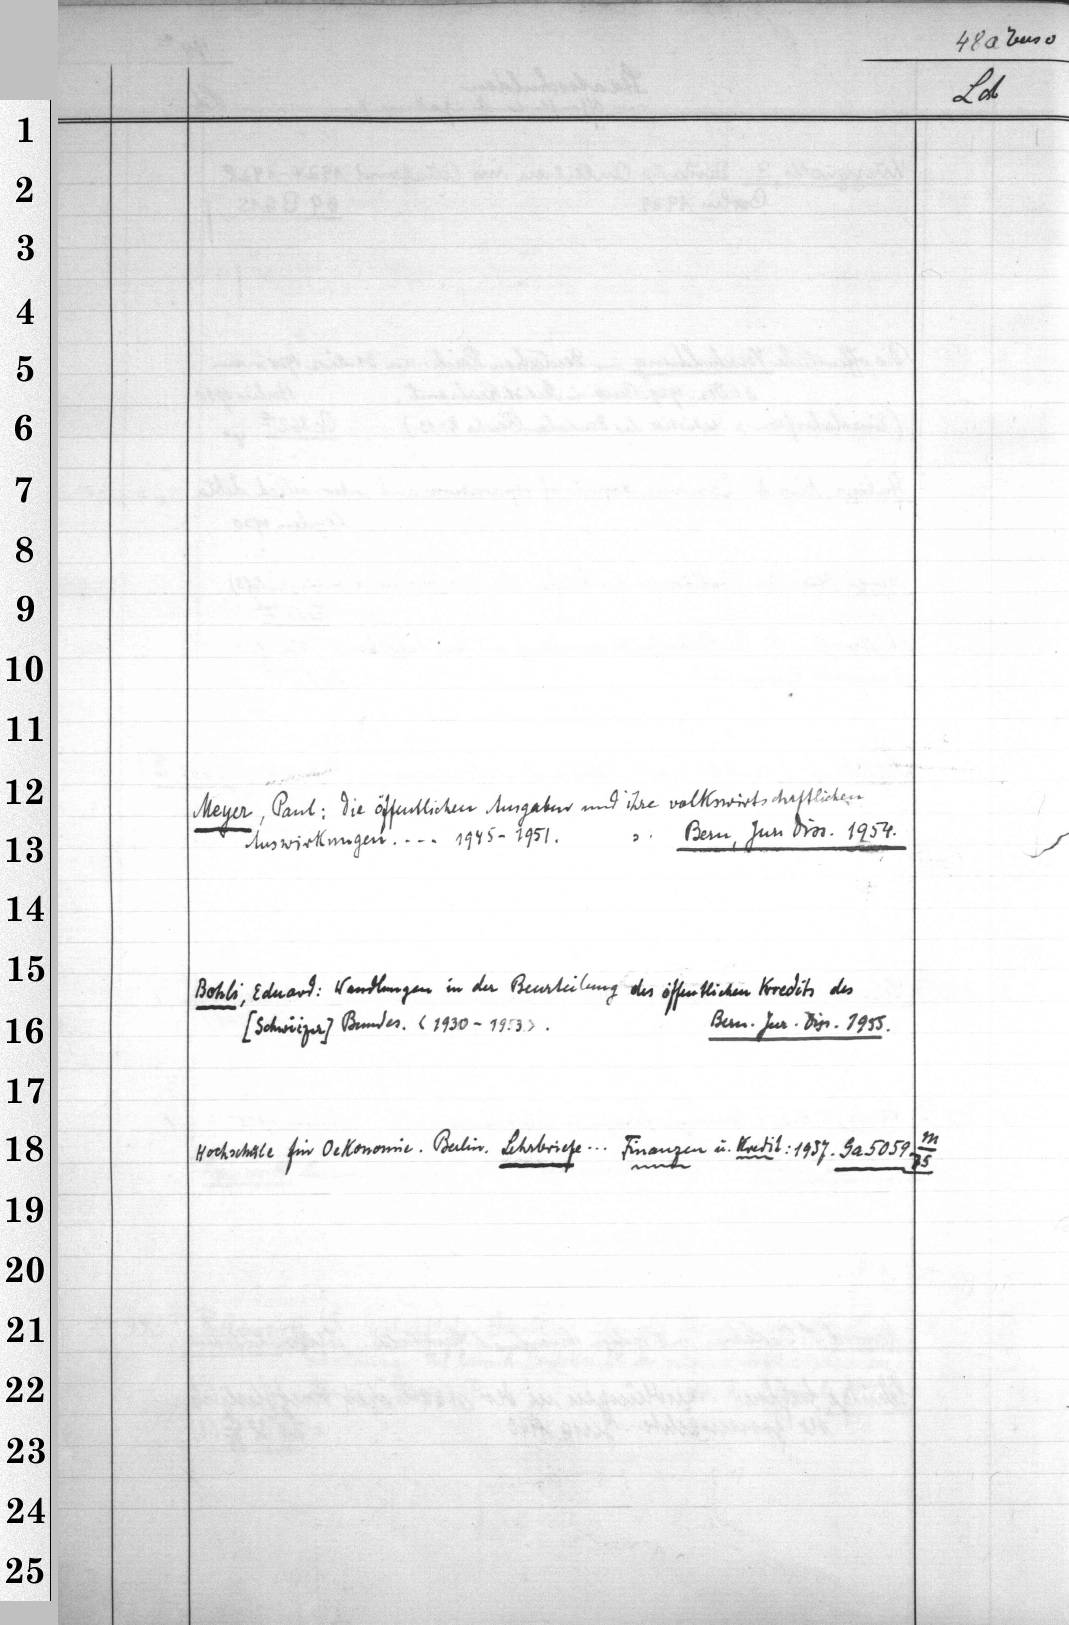 48a verso
Ld
1
2
3
4
5
6
7
8
9
10
11
12
Meyer, Paul: Die öffentlichen Ausgaben und ihre volkswirtschaftlichen
13
Auswirkungen. ... 1945-1951. Bern, Jur. Diss. 1954.
14
15
Bohli, Eduard: Wandlungen in der Beurteilung des öffentlichen Kredits des
16
[Schweizer] Bundes. <1930-1953>. Bern. Jur. Diss. 1955.
17
18
Hochschule für Oekonomie. Berlin. Lehrbriefe... Finanzen u. Kredit: 1957. Ga 5059 m
19
20
21
22
23
24
25